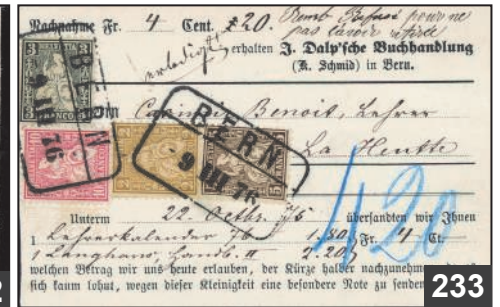 Nachnahme Fr. 4 Cent. 20.
Remb Refusé pour ne
pas l'avoir
erledigt
erhalten J. Dalp'sche Buchhandlung
(K. Schmid) in Bern.
3
FRANCO
BERN
9 III 76
Benoit, Lehrer
La Heutte
BERN
-9 III 76
5
420
Unterm 22. Octbr. 75 übersandten wir Ihnen
1 Lehrerkalender 76 1.80 Fr. 4 Ct.
1 Langhans, Handb. II 2.20
welchen Betrag wir uns heute erlauben, der Kürze halber nachzunehmen
sich kaum lohnt, wegen dieser Kleinigkeit eine besondere Note zu senden
2
233